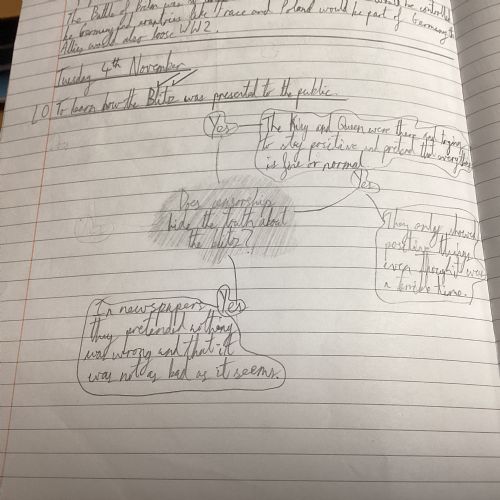 The Battle of Britain was
be controlled
be Germany and countries like France and Poland would be part of Germany the
Allies would also loose WW2.
Tuesday 4th November
LO To learn how the Blitz was presented to the public.
Yes
The King and Queen were there and trying
to stay positive and pretend that everything
is fine or normal.
Yes
Does censorship
hide the truth about
the blitz?
They only showed
positive things
even though it was
a terrible time.
Yes
In newspapers,
they pretended nothing
was wrong and that it
was not as bad as it seems.